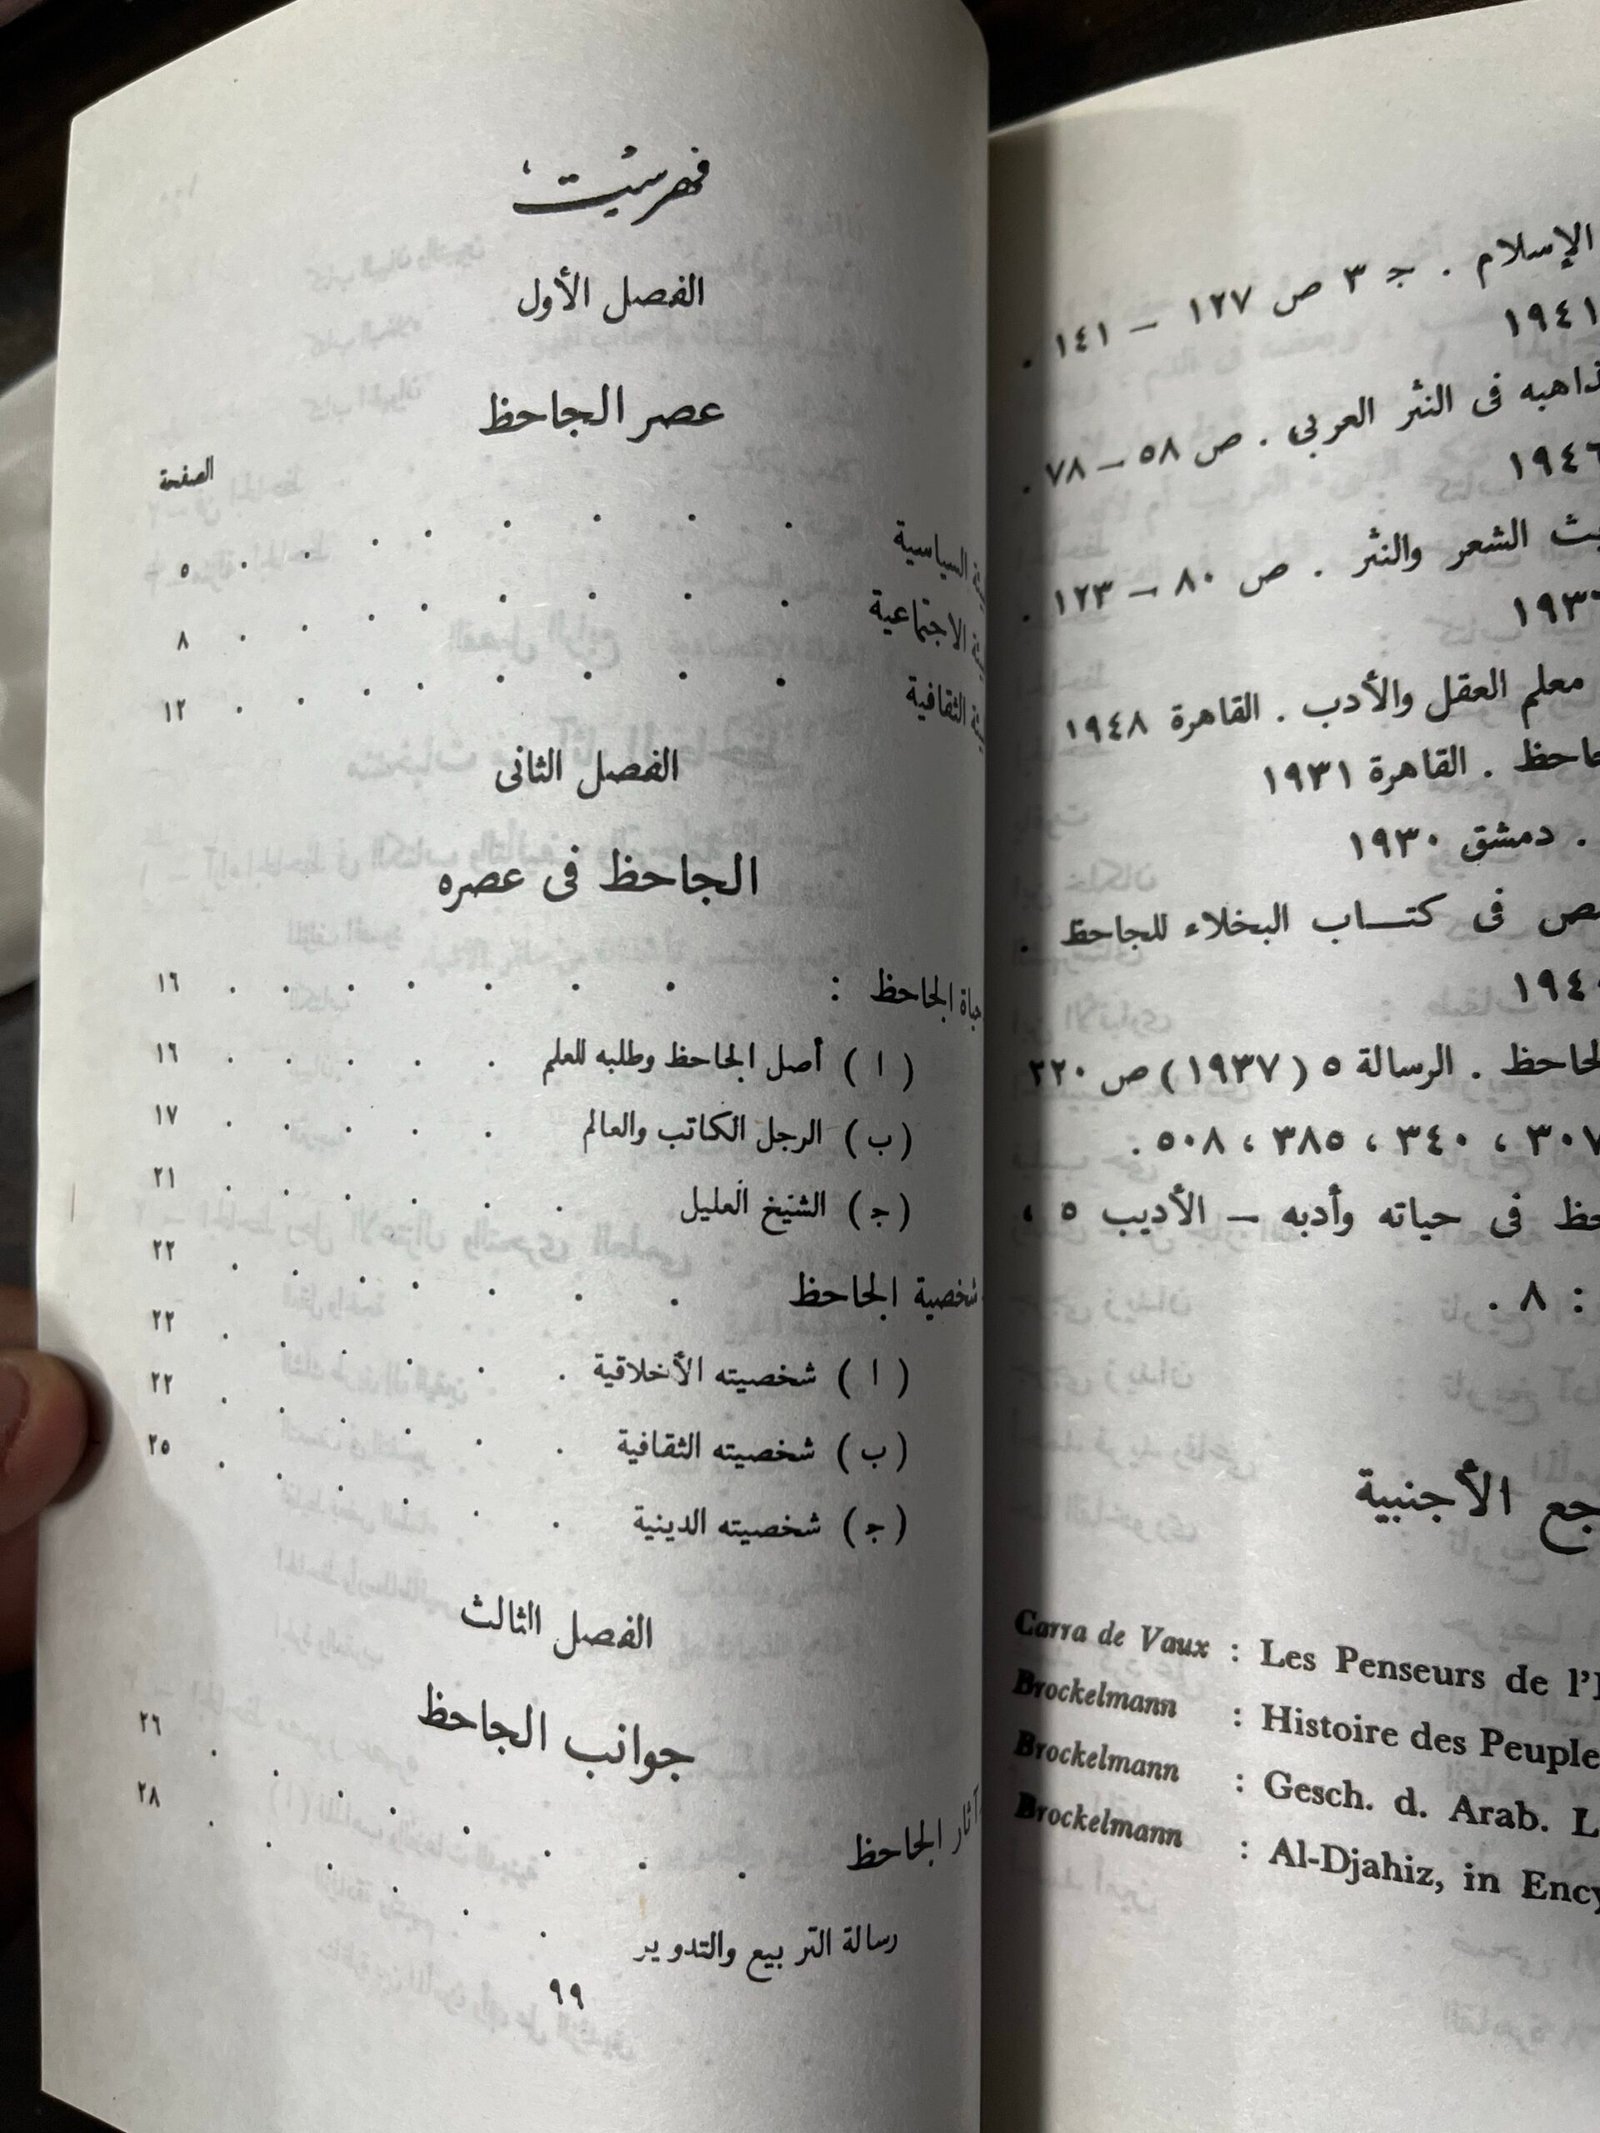 الإسلام . ج ٣ ص ١٢٧ – ١٤١ .
١٩٤١
فى النثر العربى . ص ٥٨ – ٧٨ .
١٩٤٦
الشعر والنثر . ص ٨٠ – ١٢٣ .
معلم العقل والأدب . القاهرة ١٩٤٨
. القاهرة ١٩٣١
. دمشق ١٩٣٠
فى كتـــاب البخلاء للجاحظ .
الجاحظ . الرسالة ٥ (١٩٣٧) ص ٢٢٠
٣٠٧ ، ٣٤٠ ، ٣٨٥ ، ٥٠٨ .
فى حياته وأدبه – الأديب ٥ ،
: ٨ .
الأجنبية
Carra de Vaux : Les Penseurs de
Brockelmann : Histoire des
Brockelmann : Gesch. d. Arab.
Brockelmann : Al-Djahiz, in
فهرست
الفصل الأول
عصر الجاحظ
الصفحة
السياسية . . . . . . . . ٥
الاجتماعية . . . . . . . . ٨
الثقافية . . . . . . . . ١٢
الفصل الثانى
الجاحظ فى عصره
حياة الجاحظ : . . . . . . . ١٦
( ا ) أصل الجاحظ وطلبه للعلم . . . . . ١٦
(ب) الرجل الكاتب والعالم . . . . . ١٧
(ج) الشيخ العليل . . . . . . ٢١
شخصية الجاحظ . . . . . . . ٢٢
( ا ) شخصيته الأخلاقية . . . . . . ٢٢
(ب) شخصيته الثقافية . . . . . . ٢٢
(ج) شخصيته الدينية . . . . . . ٢٥
الفصل الثالث
جوانب الجاحظ
آثار الجاحظ . . . . . . . ٢٦
رسالة التربيع والتدوير . . . . . . ٢٨
٩٩